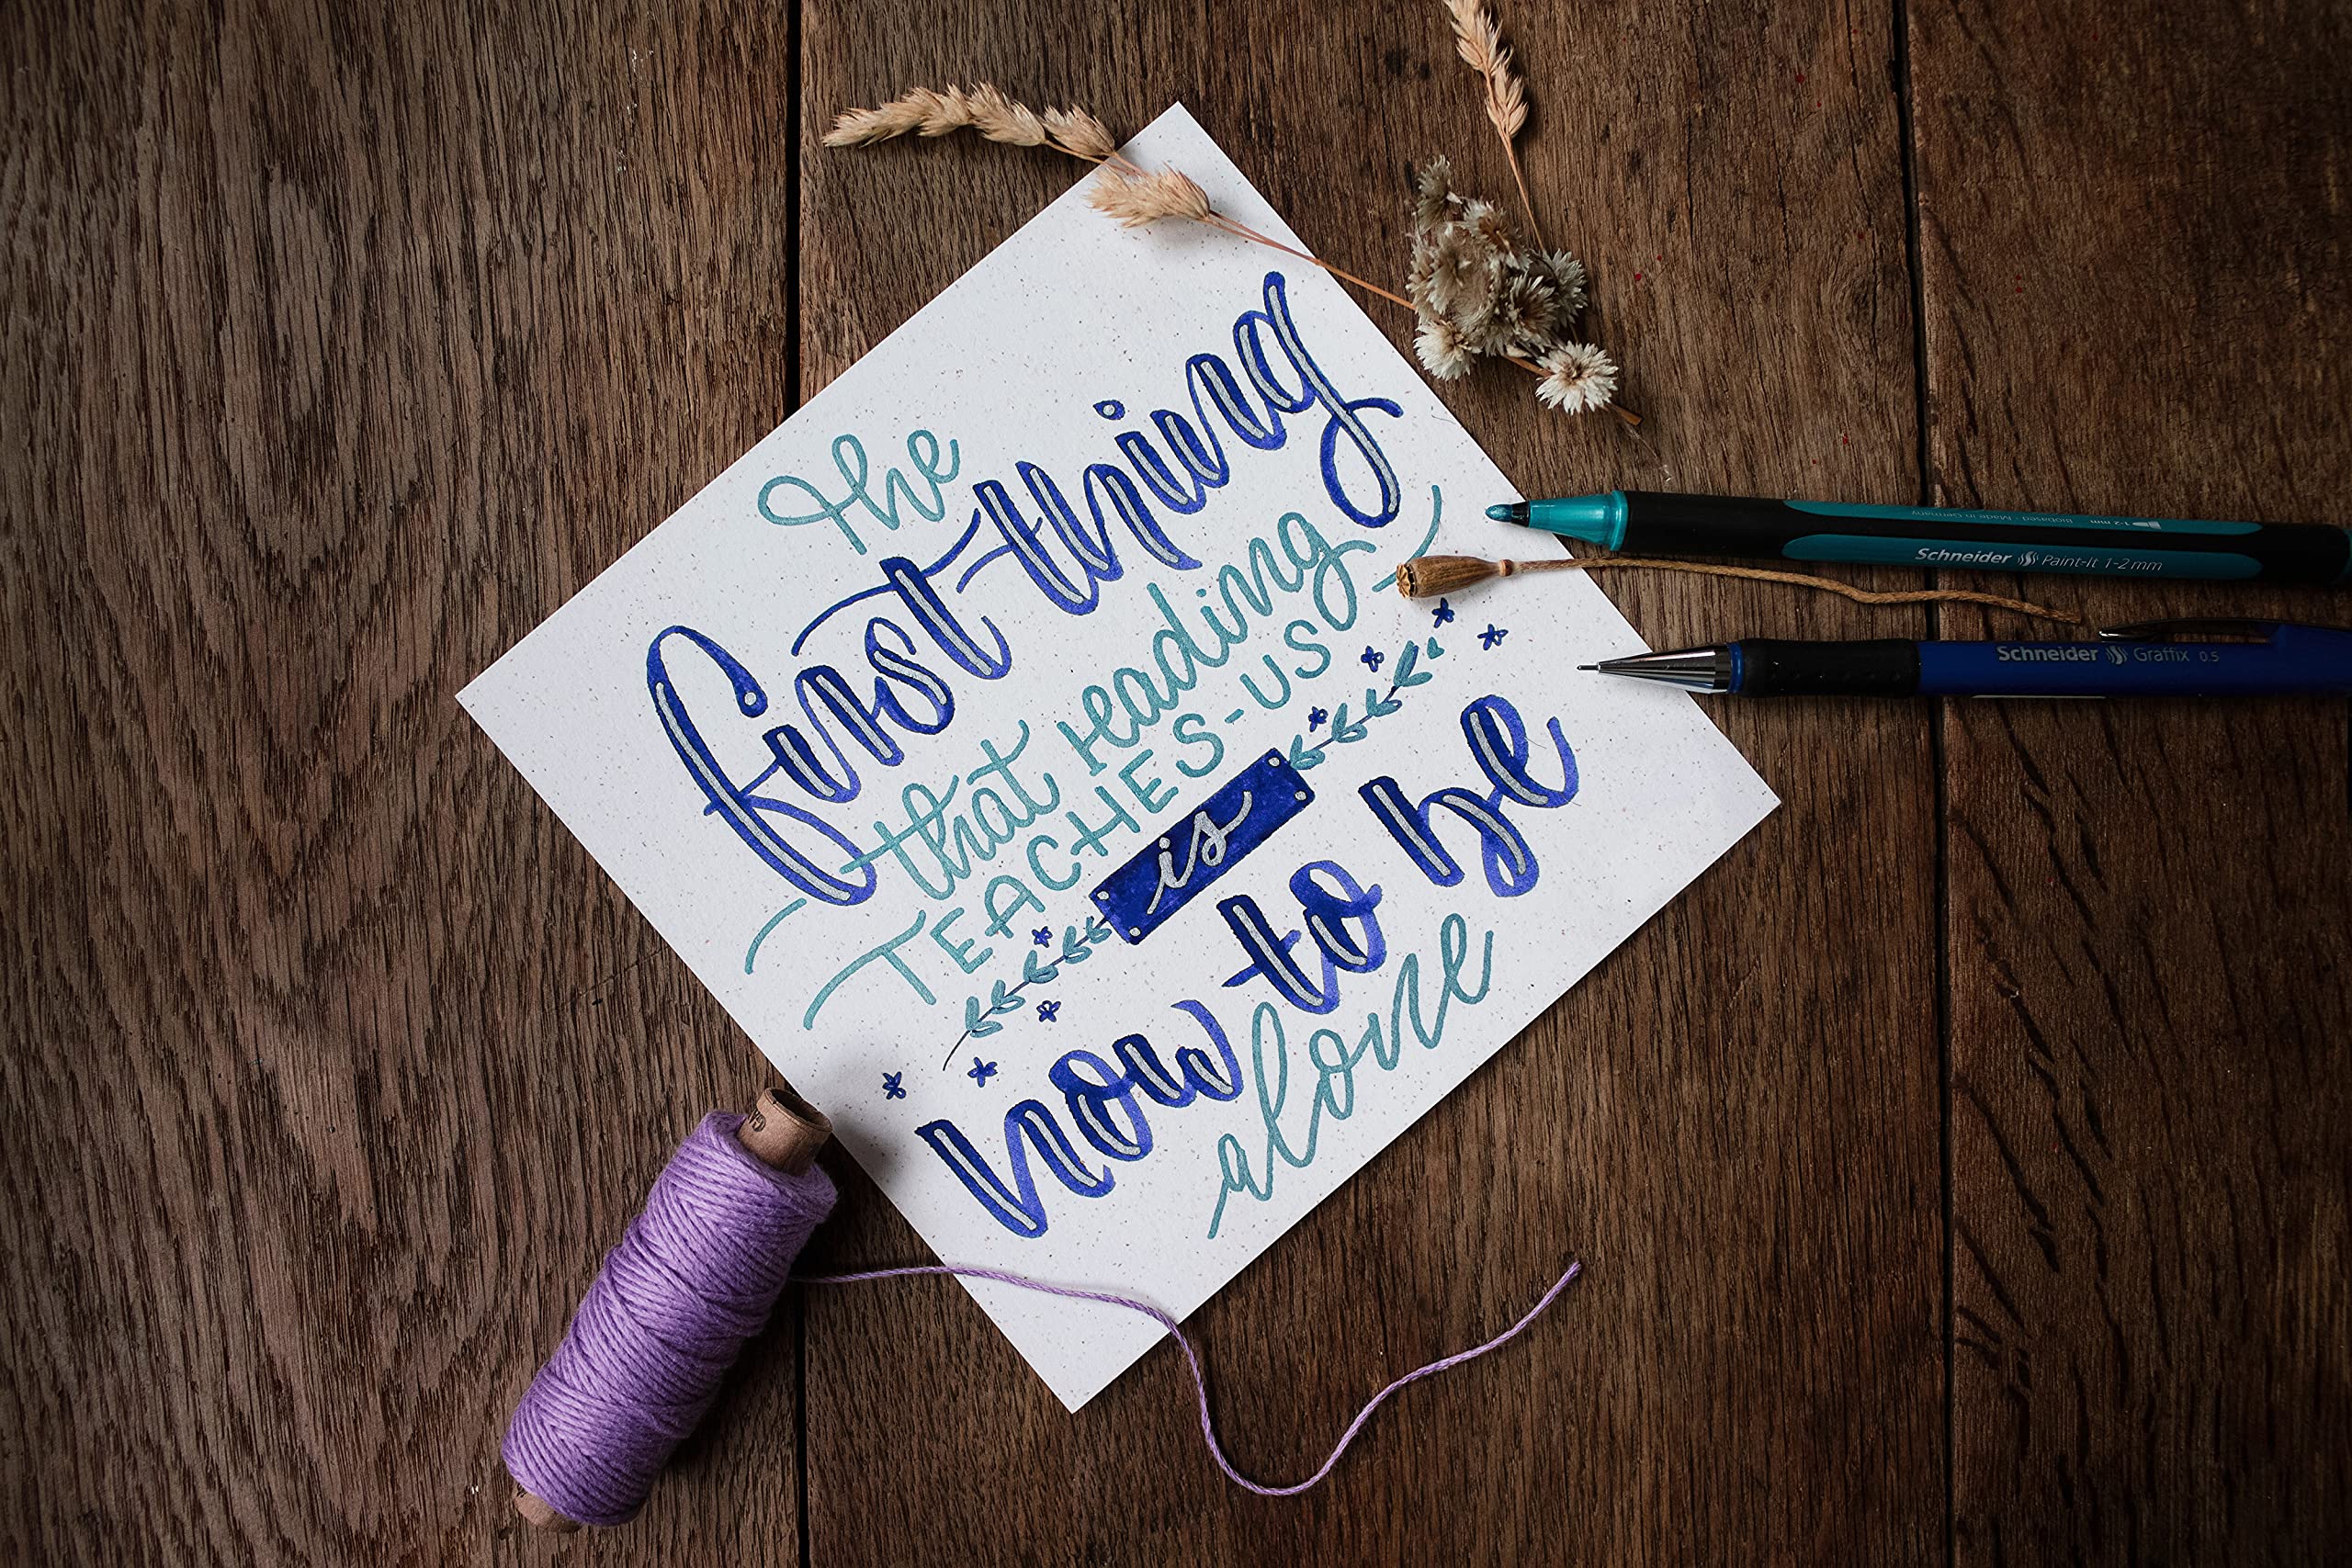 the
first thing
that reading
TEACHES-US
is
how to be
alone
Schneider Paint-It 1-2 mm
biobased Made in Germany 1-2 mm
Schneider Graffix 0.5